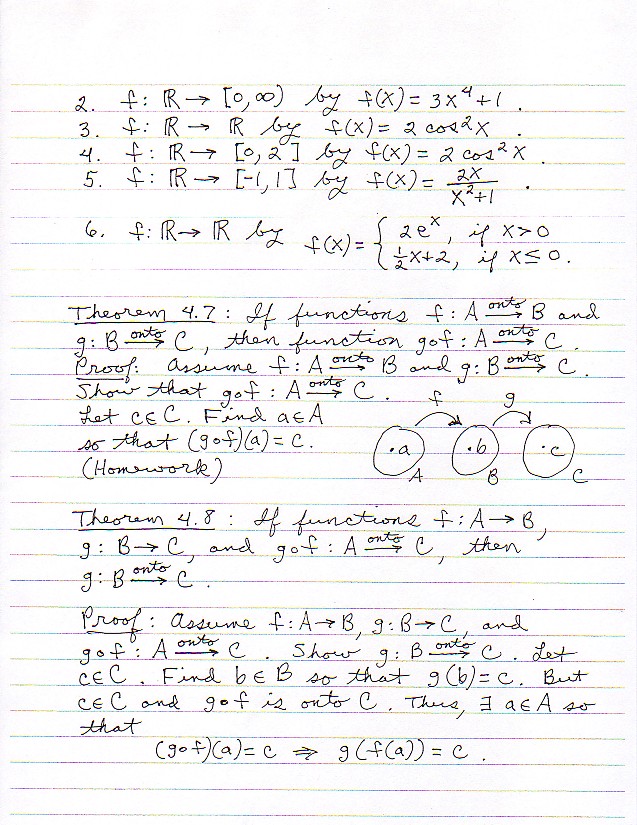 2. f: ℝ → [0,∞) by f(x) = 3x⁴+1 .
3. f: ℝ → ℝ by f(x) = 2 cos²x .
4. f: ℝ → [0,2] by f(x) = 2 cos²x .
5. f: ℝ → [-1,1] by f(x) = 2x/(x²+1) .
6. f: ℝ → ℝ by f(x) = { 2eˣ, if x>0
½x+2, if x≤0.
Theorem 4.7 : If functions f: A onto→ B and
g: B onto→ C, then function g∘f : A onto→ C .
Proof: Assume f: A onto→ B and g: B onto→ C.
Show that g∘f : A onto→ C .
Let c∈C. Find a∈A
so that (g∘f)(a) = c.
(Homework)
f g
·a ·b ·c
A B C
Theorem 4.8 : If functions f: A→B,
g: B→C, and g∘f : A onto→ C, then
g: B onto→ C .
Proof: Assume f: A→B, g: B→C, and
g∘f : A onto→ C . Show g: B onto→ C. Let
c∈C . Find b∈B so that g(b)=c. But
c∈C and g∘f is onto C. Thus, ∃ a∈A so
that
(g∘f)(a) = c ⇒ g(f(a)) = c .